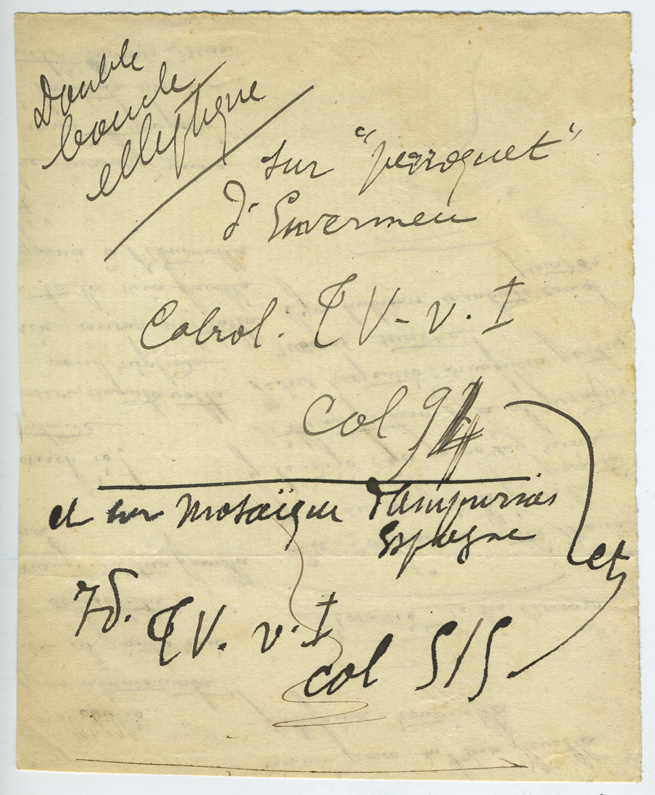 Double
boucle
elliptique
sur "perroquet"
d'Envermeu
Cabrol. T V - v. I
col 94
et sur mosaïque d'Ampurias
Espagne
et
Id. T V. v. I
col 515